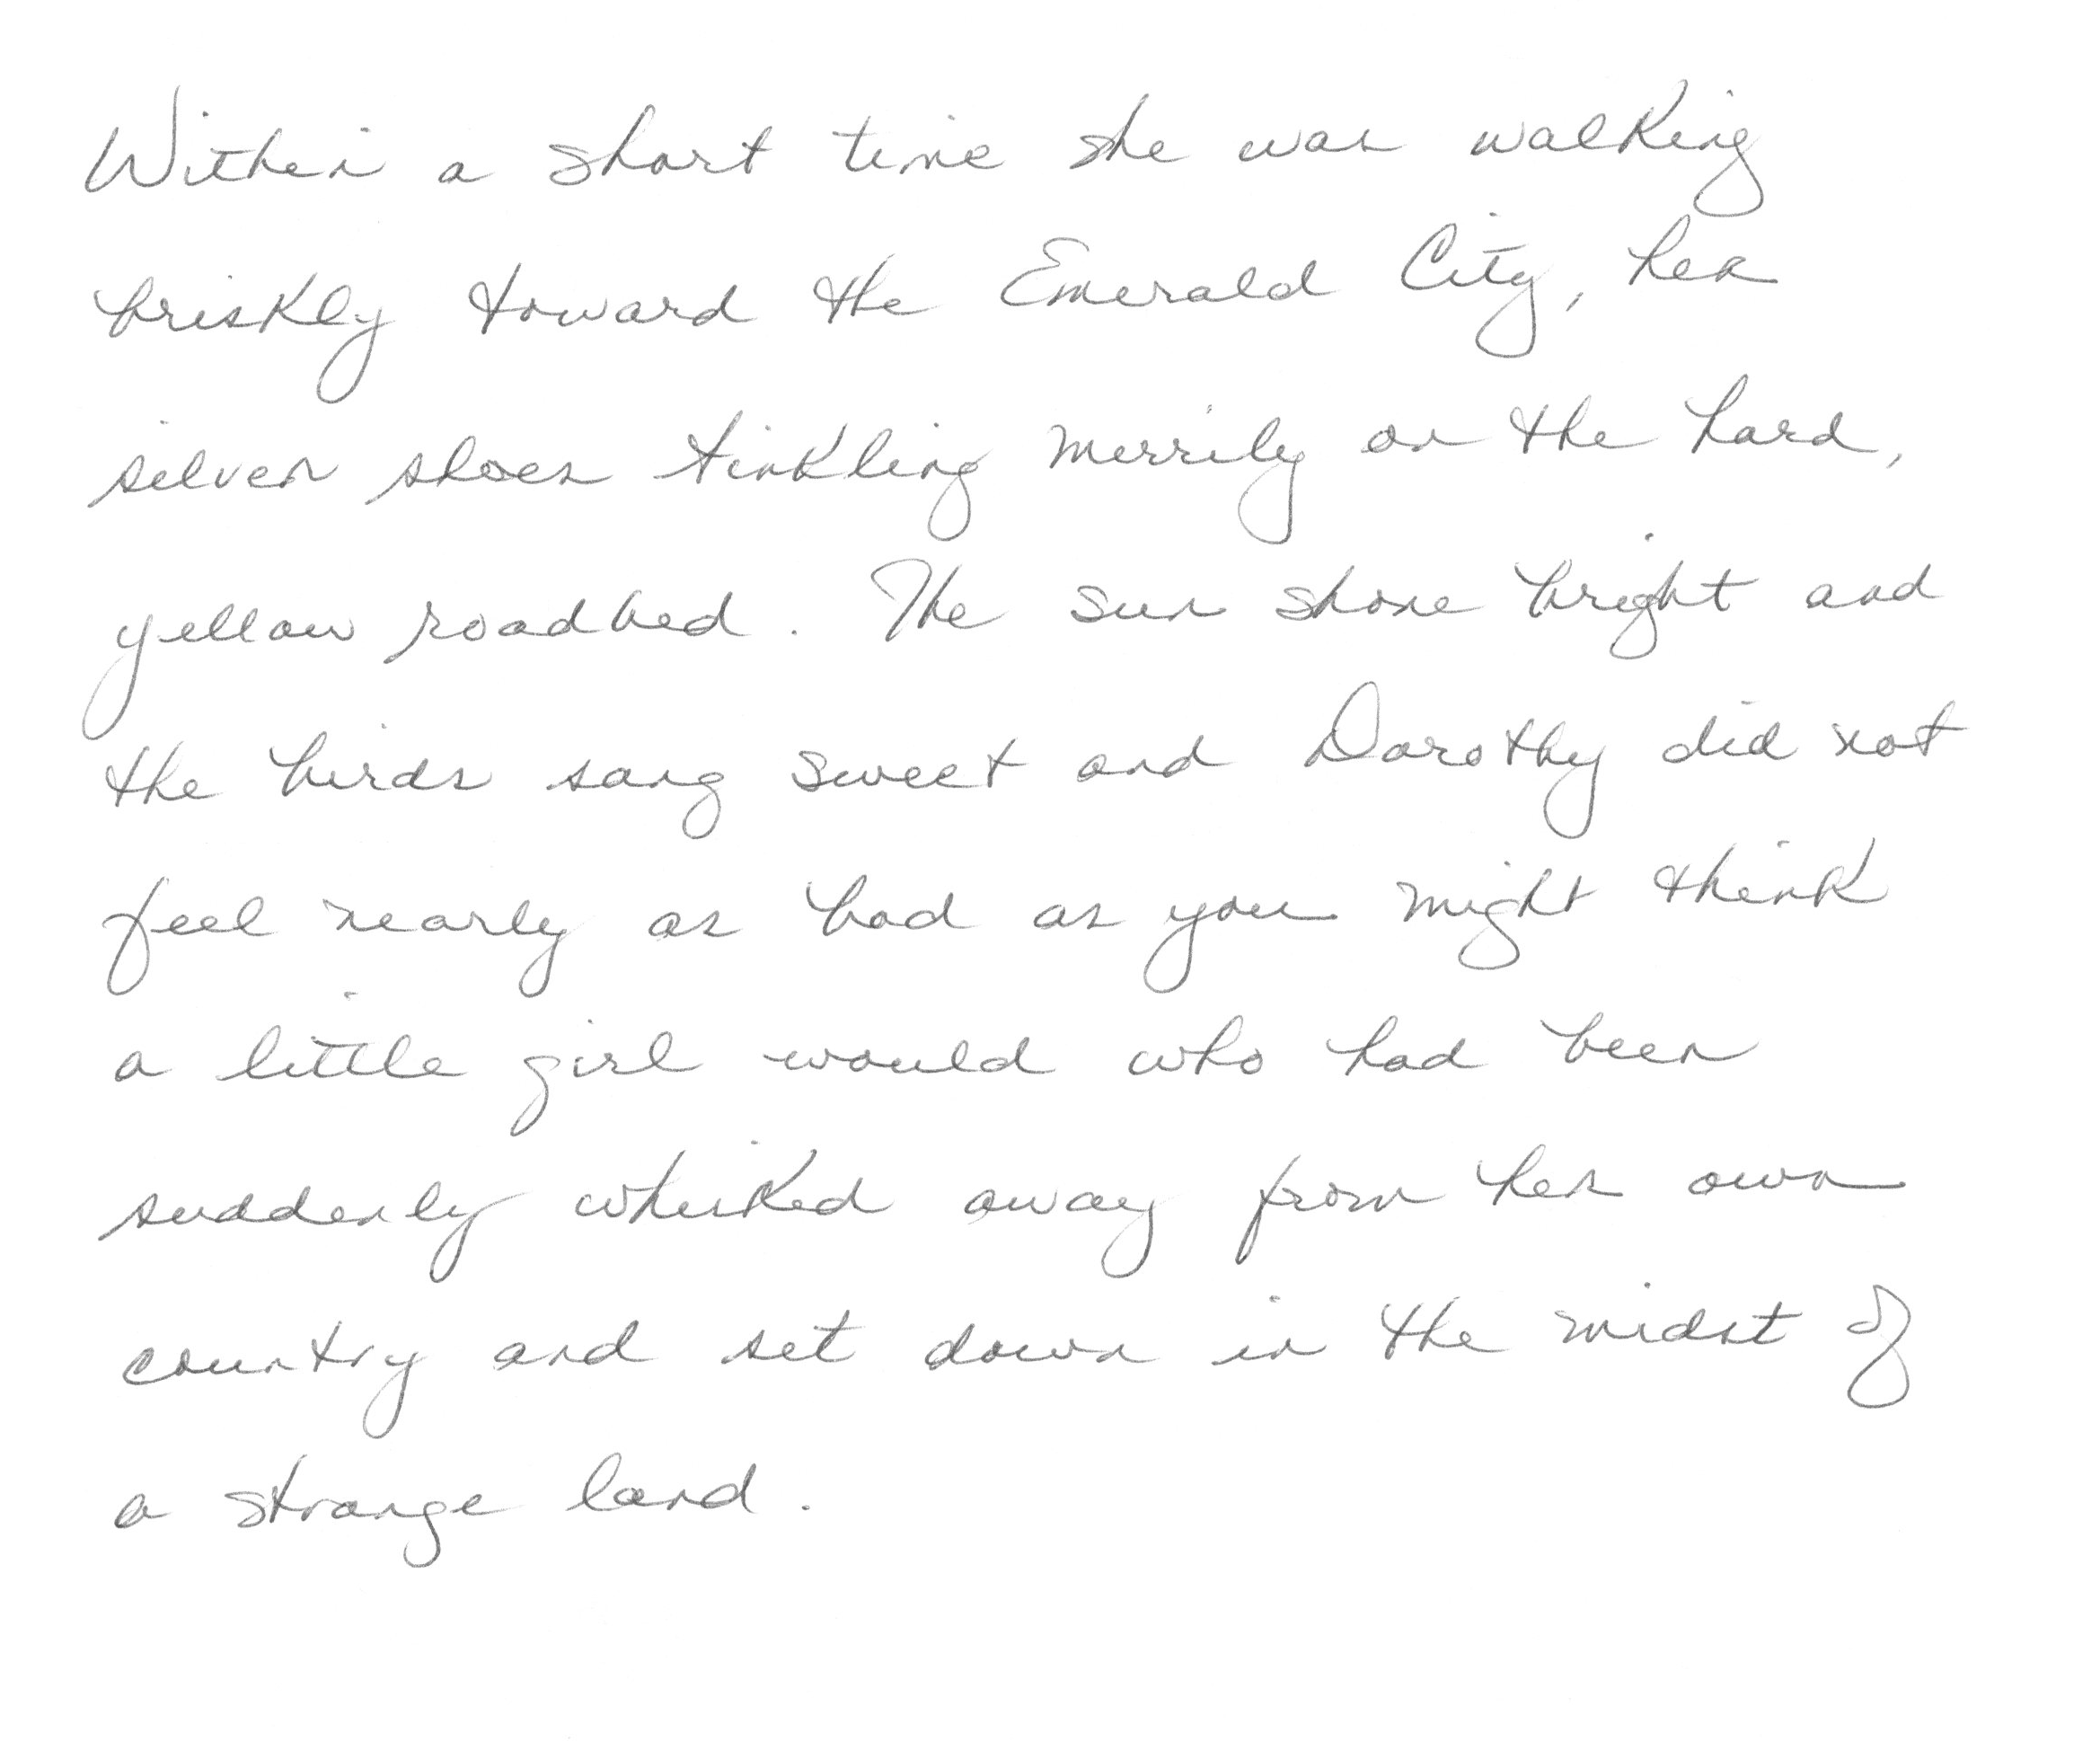 Within a short time she was walking
briskly toward the Emerald City, her
silver shoes tinkling merrily on the hard,
yellow roadbed. The sun shone bright and
the birds sang sweet and Dorothy did not
feel nearly as bad as you might think
a little girl would who had been
suddenly whisked away from her own
country and set down in the midst of
a strange land.